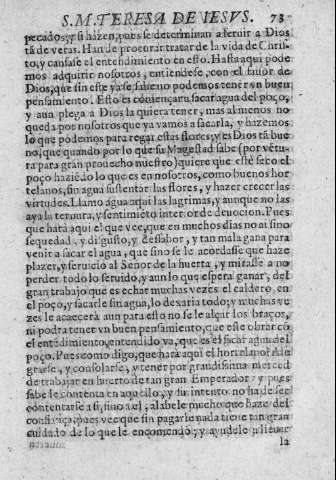 S. M. TERESA DE IESVS. 73
pecados, y si hizen, pues se determinan a seruir a Dios
tã de veras. Han de procurar tratar de la vida de Chris-
to, y cansase el entendimiento en esto. Hasta aqui pode
mos adquirir nosotros, entiendese, con el fauor de
Dios, que sin este ya se sabe no podemos tener vn buen
pensamiento. Esto es comẽçar a sacar agua del poço,
y aun plega a Dios la quiera tener, mas al menos no
queda por nosotros que ya vamos a sacarla, y hazemos
lo que podemos para regar estas flores, y es Dios tã bue
no, que quando por lo que su Magestad sabe (por vẽtu-
ra para gran prouecho nuestro) quiere que estè seco el
poço haziẽdo lo que es en nosotros, como buenos hor
telanos, sin agua sustentar las flores, y hazer crecer las
virtudes. Llamo agua aqui las lagrimas, y aunque no las
aya la ternura, y sentimiẽto interior de deuocion. Pues
que harà aqui el que vee, que en muchos dias no ai sino
sequedad, y disgusto, y desabor, y tan mala gana para
venir a sacar el agua, que sino se le acordasse que haze
plazer, y seruicio al Señor de la huerta, y mirasse a no
perder todo lo seruido, y aun lo que espera ganar, del
gran trabajo que es echar muchas vezes el caldero en
el poço, y sacarle sin agua, lo dexaria todo; y muchas ve
zes le acaecerà aun para esto no se le alçar los braços,
ni podra tener vn buen pensamiento, que este obrar cõ
el entẽdimiento, entendido va, que es el sacar agua del
poço. Pues como digo, que harà aqui el hortelano? Ale
grarse, y consolarse, y tener por grandissima merced
de trabajar en huerto de tan gran Emperador: y pues
sabe le contenta en aquello, y su intento no ha de ser
contentarse a si, sino a el; alabele mucho que haze del
confiãça, pues vee que sin pagarle nada tiene tan gran
cuidado de lo que le encomendò; y ayudele a lleuar
la